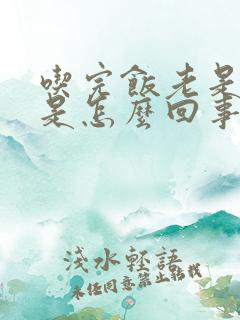 喫完飯老
是怎麼回事
淺水輕語
未经同意禁止转载